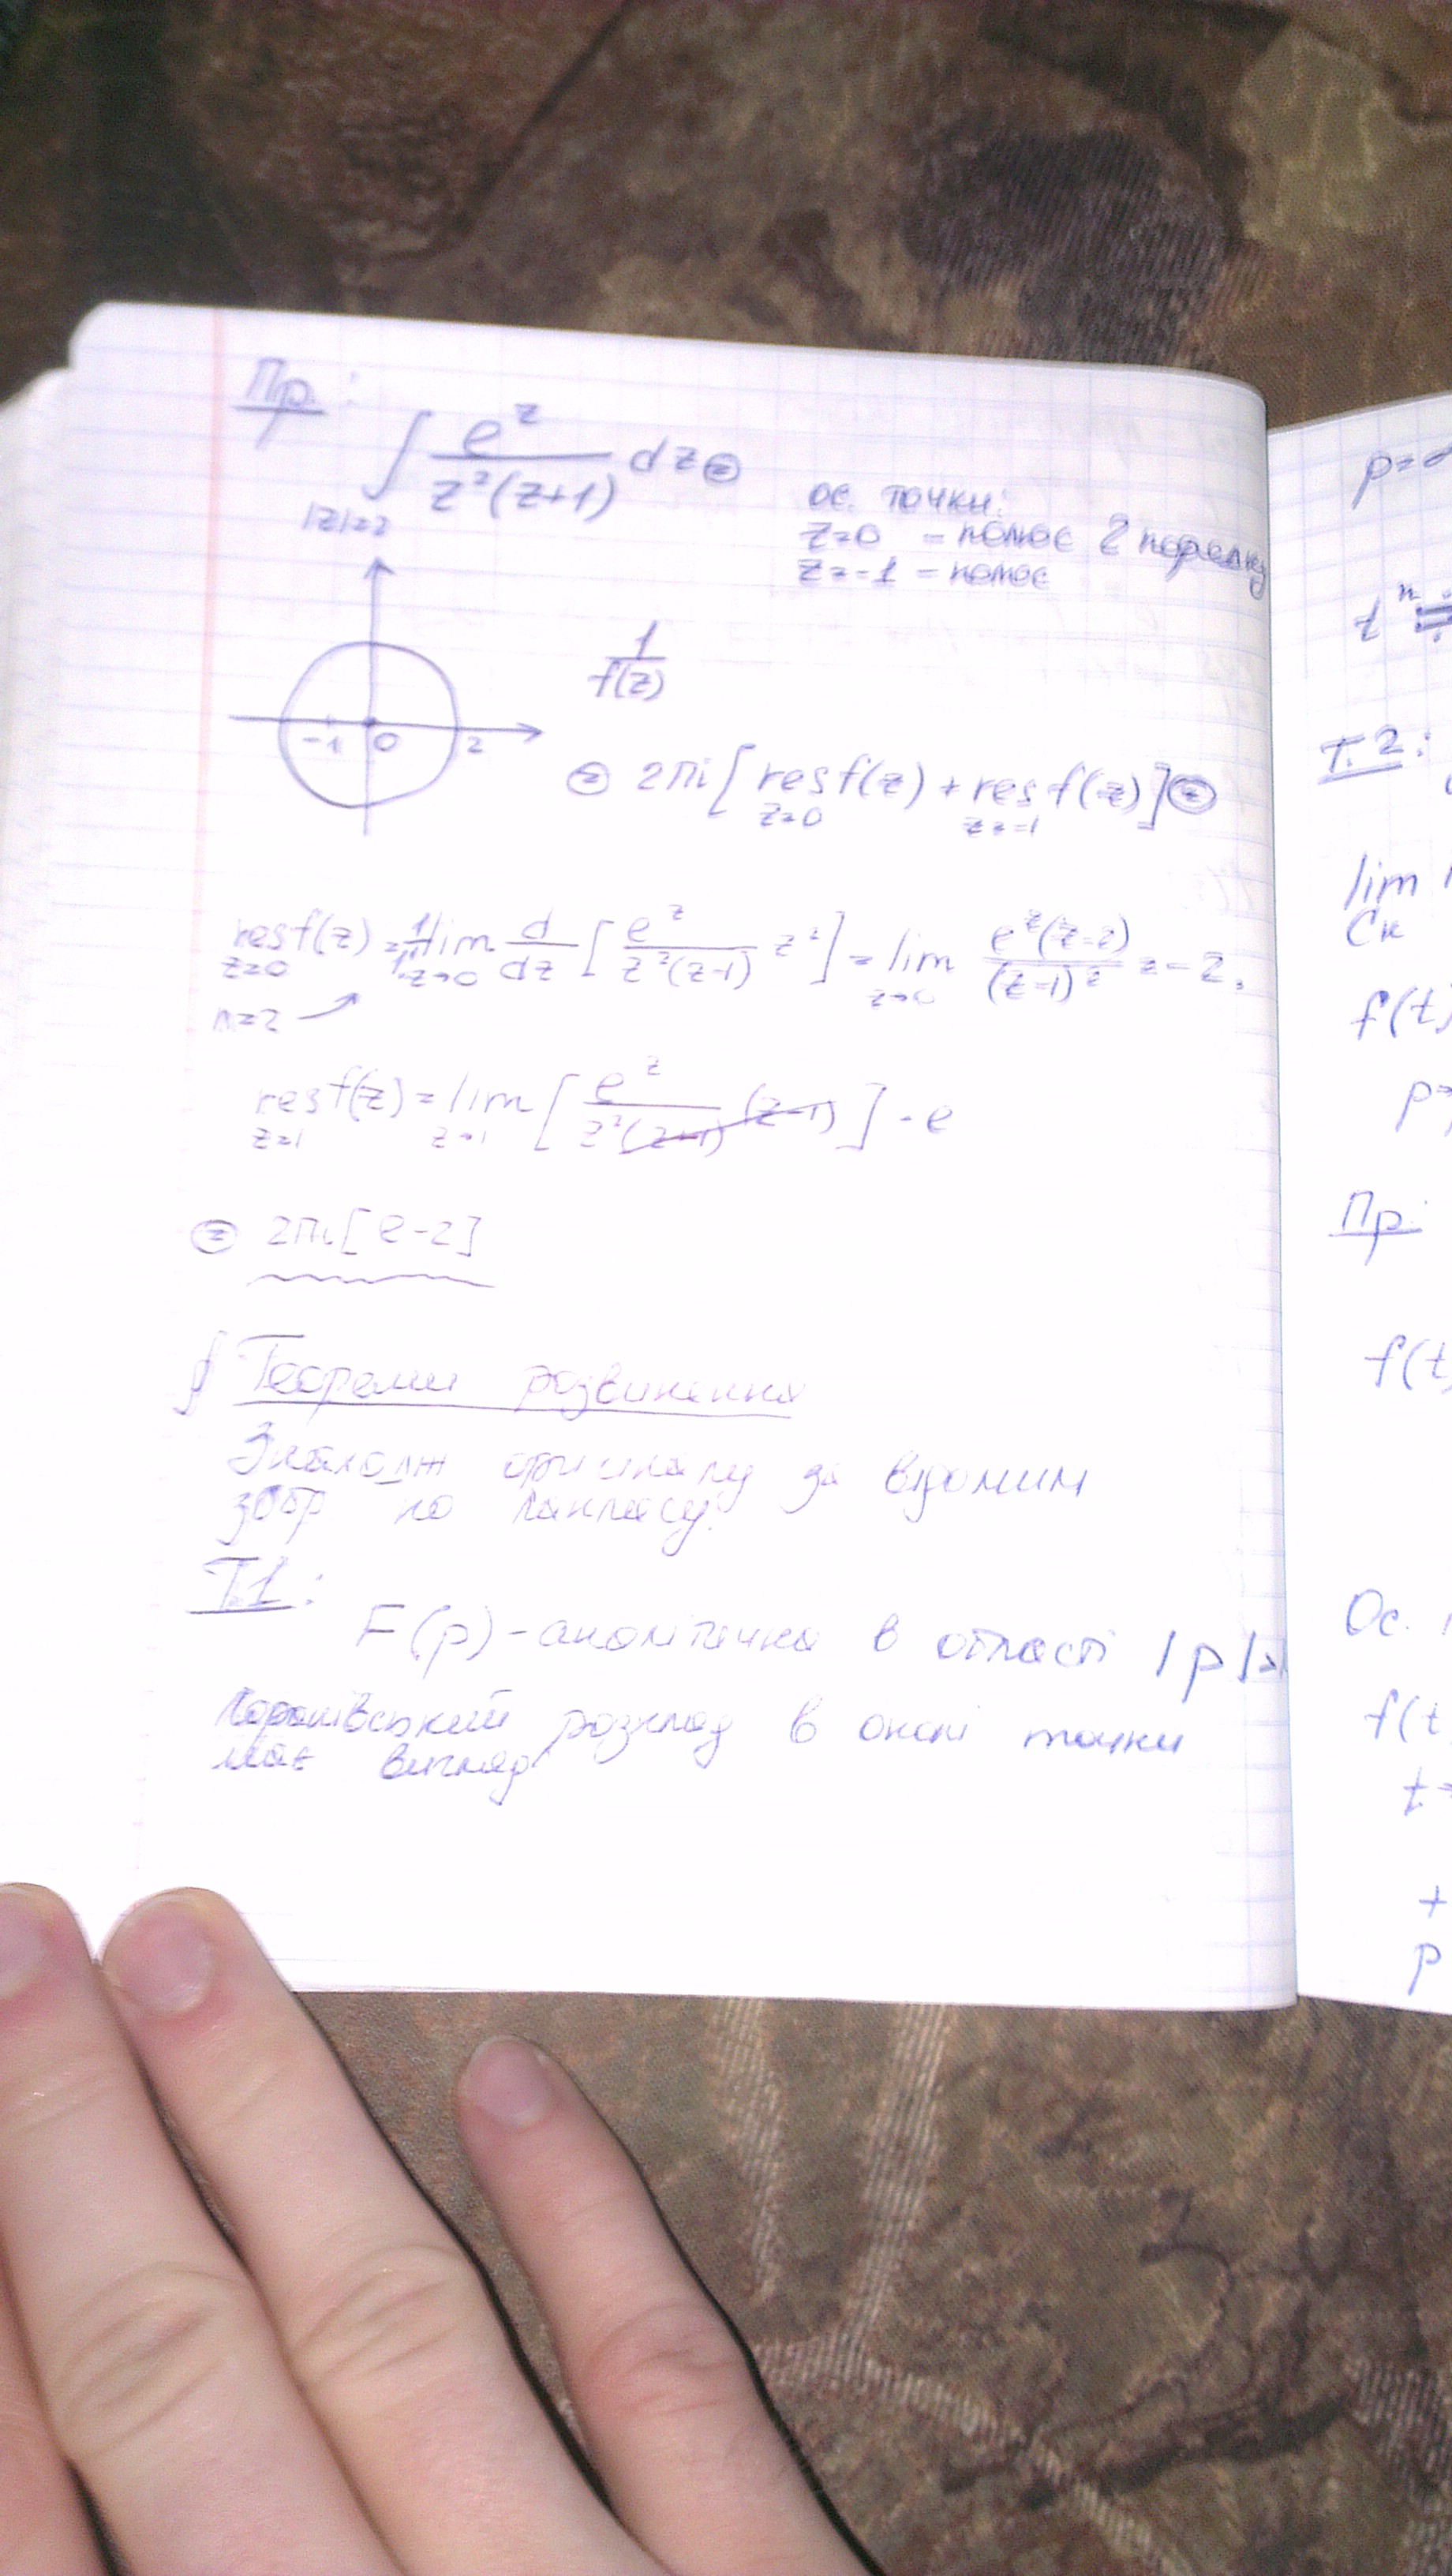 Пр:
∫ e^z / z²(z+1) dz ⊜
|z|=2
ос. точки:
z=0 - полюс 2 порядку
z=-1 - полюс
1 / f(z)
-1 0 2
⊜ 2πi [ res f(z) + res f(z) ] ⊜
z=0 z=-1
res f(z) = 1/1! lim d/dz [ e^z / z²(z-1) z² ] = lim e^z(z-2) / (z-1)² = -2,
z=0 z→0 z→0
n=2
res f(z) = lim [ e^z / z²(z-1) (z-1) ] = e
z=1 z→1
⊜ 2πi [e-2]
§ Теореми розвинення
Знаходж оригіналу за відомим
зобр по Лапласу.
Т.1:
F(p) - аналітична в області |p|>
Лоранівський розклад в околі точки
має вигляд
p=
t^n
Т.2:
lim
Ск
f(t)
p=
Пр:
f(t)
Ос.
f(t
t=
+
p